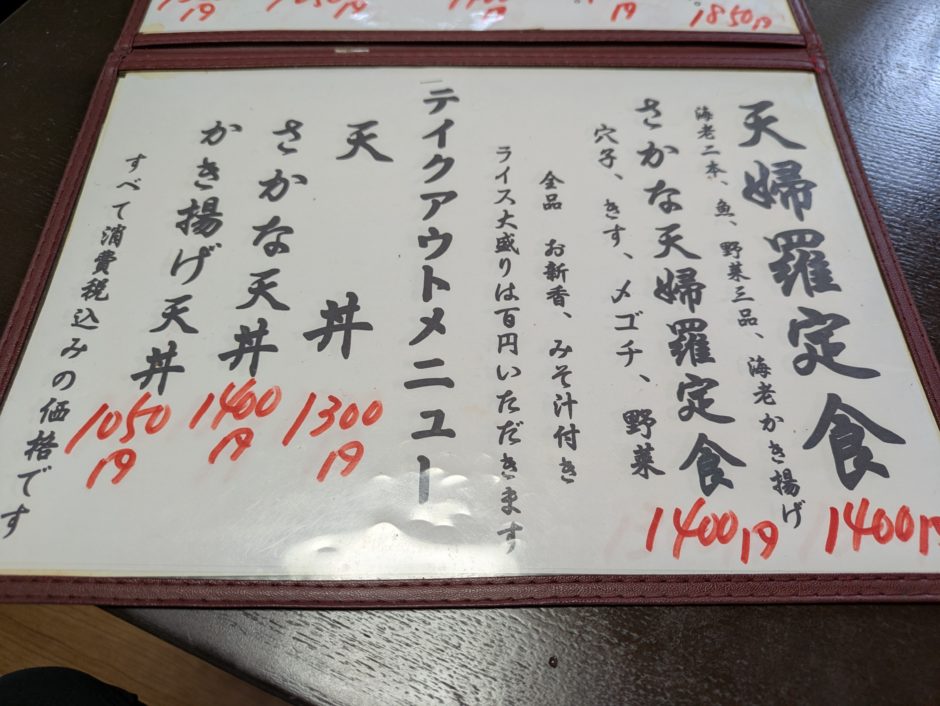 1850円
天婦羅定食
1400円
海老二本、魚、野菜三品、海老かき揚げ
さかな天婦羅定食
1400円
穴子、きす、メゴチ、野菜
全品 お新香、みそ汁付き
ライス大盛りは百円いただきます
テイクアウトメニュー
天丼
1300円
さかな天丼
1400円
かき揚げ天丼
1050円
すべて消費税込みの価格です